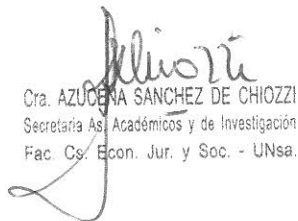 Cra. AZUCENA SANCHEZ DE CHIOZZI
Secretaria As. Académicos y de Investigación
Fac. Cs. Econ. Jur. y Soc. - UNsa.